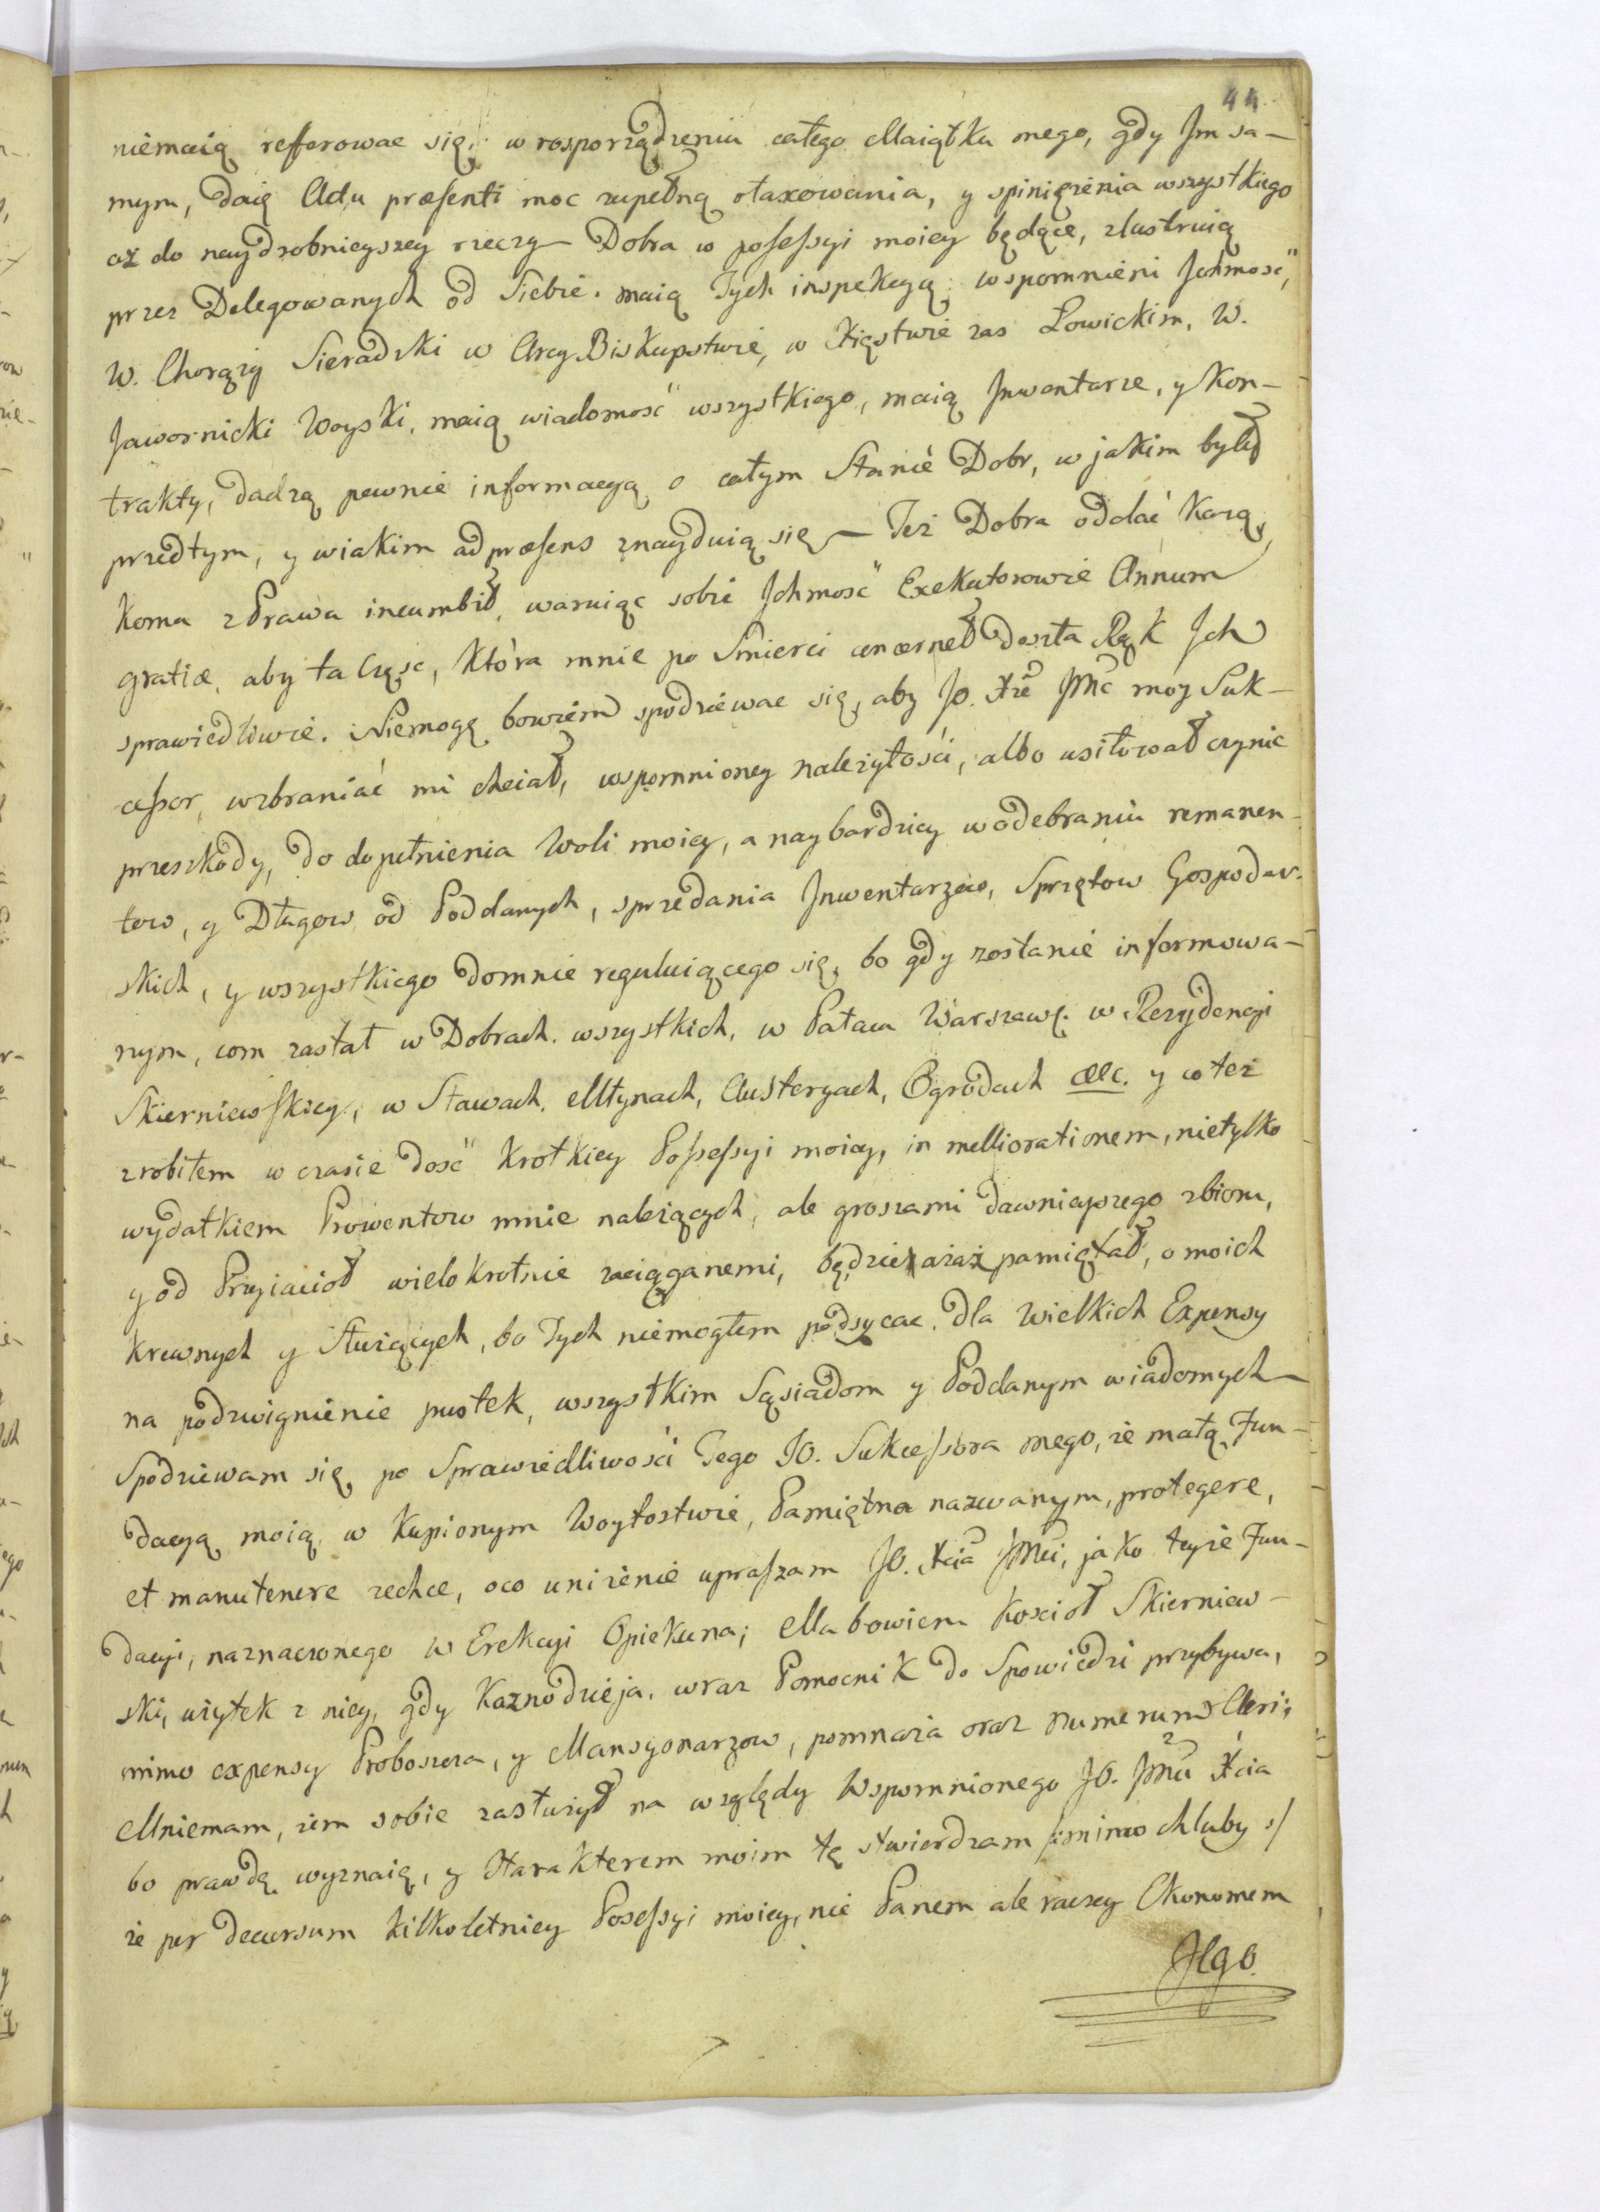 44
niemaią refferowac się, w rosporządzeniu całego Maiątku mego, gdy Jm sa-
mym, daię Actu præsenti moc zupełną otaxowania, y spiniężenia wszystkiego
aż do naydrobnieyszey rzeczy – Dobra w possessyi moiey będące, zlustruią
przez Delegowanych od Siebie. maią Tych inspekcyą wspomnieni Jchmosć,
W. Chorąży Sieradzki w Arcy Biskupstwie, w Xięstwie zas Łowickim, W.
Jawornicki Woyski, maią wiadomosć wszystkiego, maią Jnwentarze, y Kon-
trakty, dadzą pewnie informacyą o całym Stanie Dobr, w jakim były
przedtym, y wiakim ad præsens znayduią się – Też Dobra oddać każą,
komu z Prawa incumbit, waruiąc sobie Jchmosć Exekutorowie Annum
gratiæ, aby ta Częsc, Która mnie po Smierci concernet doszła Rąk Jch
sprawiedliwie. Niemogę bowiem spodziewac się, aby Jo. Xże JMć moy Suk-
cessor, wzbraniać mi chciał, wspomnioney należytości, albo usiłował czynic
przeszkody, do dopełnienia Woli moiey, a naybardziey wodebraniu remanen-
tow, y Długow od Poddanych, sprzedania Jnwentarzow, Sprzętow Gospodar-
skich, y wszystkiego domnie reguluiącego się, bo gdy zostanie informowa-
nym, com zastał w Dobrach wszystkich, w Pałacu Warszaws. w Rezydencyi
Skierniewskiey, w Stawach, Młynach, Austeryach, Ogrodach &c. y co też
zrobiłem w czasie dosć Krotkiey Possessyi moiey, in melliorationem, nietylko
wydatkiem Prowentow mnie należących, ale groszami dawnieyszego zbioru,
y od Przyiacioł wielokrotnie zaciąganemi, będzie zaraz pamiętał, o moich
Krewnych y Służących, bo Tych niemogłem podsycac, dla Wielkich Expensy
na podzwignienie pustek, wszystkim Sąsiadom y Poddanym wiadomych –
Spodziewam się, po Sprawiedliwosci Tego JO. Sukcessora mego, że małą Fun-
dacyą moią, w Kupionym Woytostwie, Pamiętna nazwanym, protegere,
et manutenere zechce, oco uniżenie upraszam JO. Xcia JMci, jako teyże Fun-
dacyi, naznaczonego w Erekcyi Opiekuna; Ma bowiem Koscioł Skierniew-
ski, użytek z niey, gdy Kaznodzieja, wraz Pomocnik do Spowiedzi przybywa,
mimo expensy Proboszcza, y Mansyonarzow, pomnaża oraz numerum Cleri;
Mniemam, żem sobie zasłużył na względy Wspomnionego JO. JMci Xcia
bo prawdę wyznaię, y Charakterem moim tę stwierdzam /: mimo chluby :/
że per decursum kilkoletniey Possessyi moiey, nie Panem ale raczey Ekonomem
Jego.